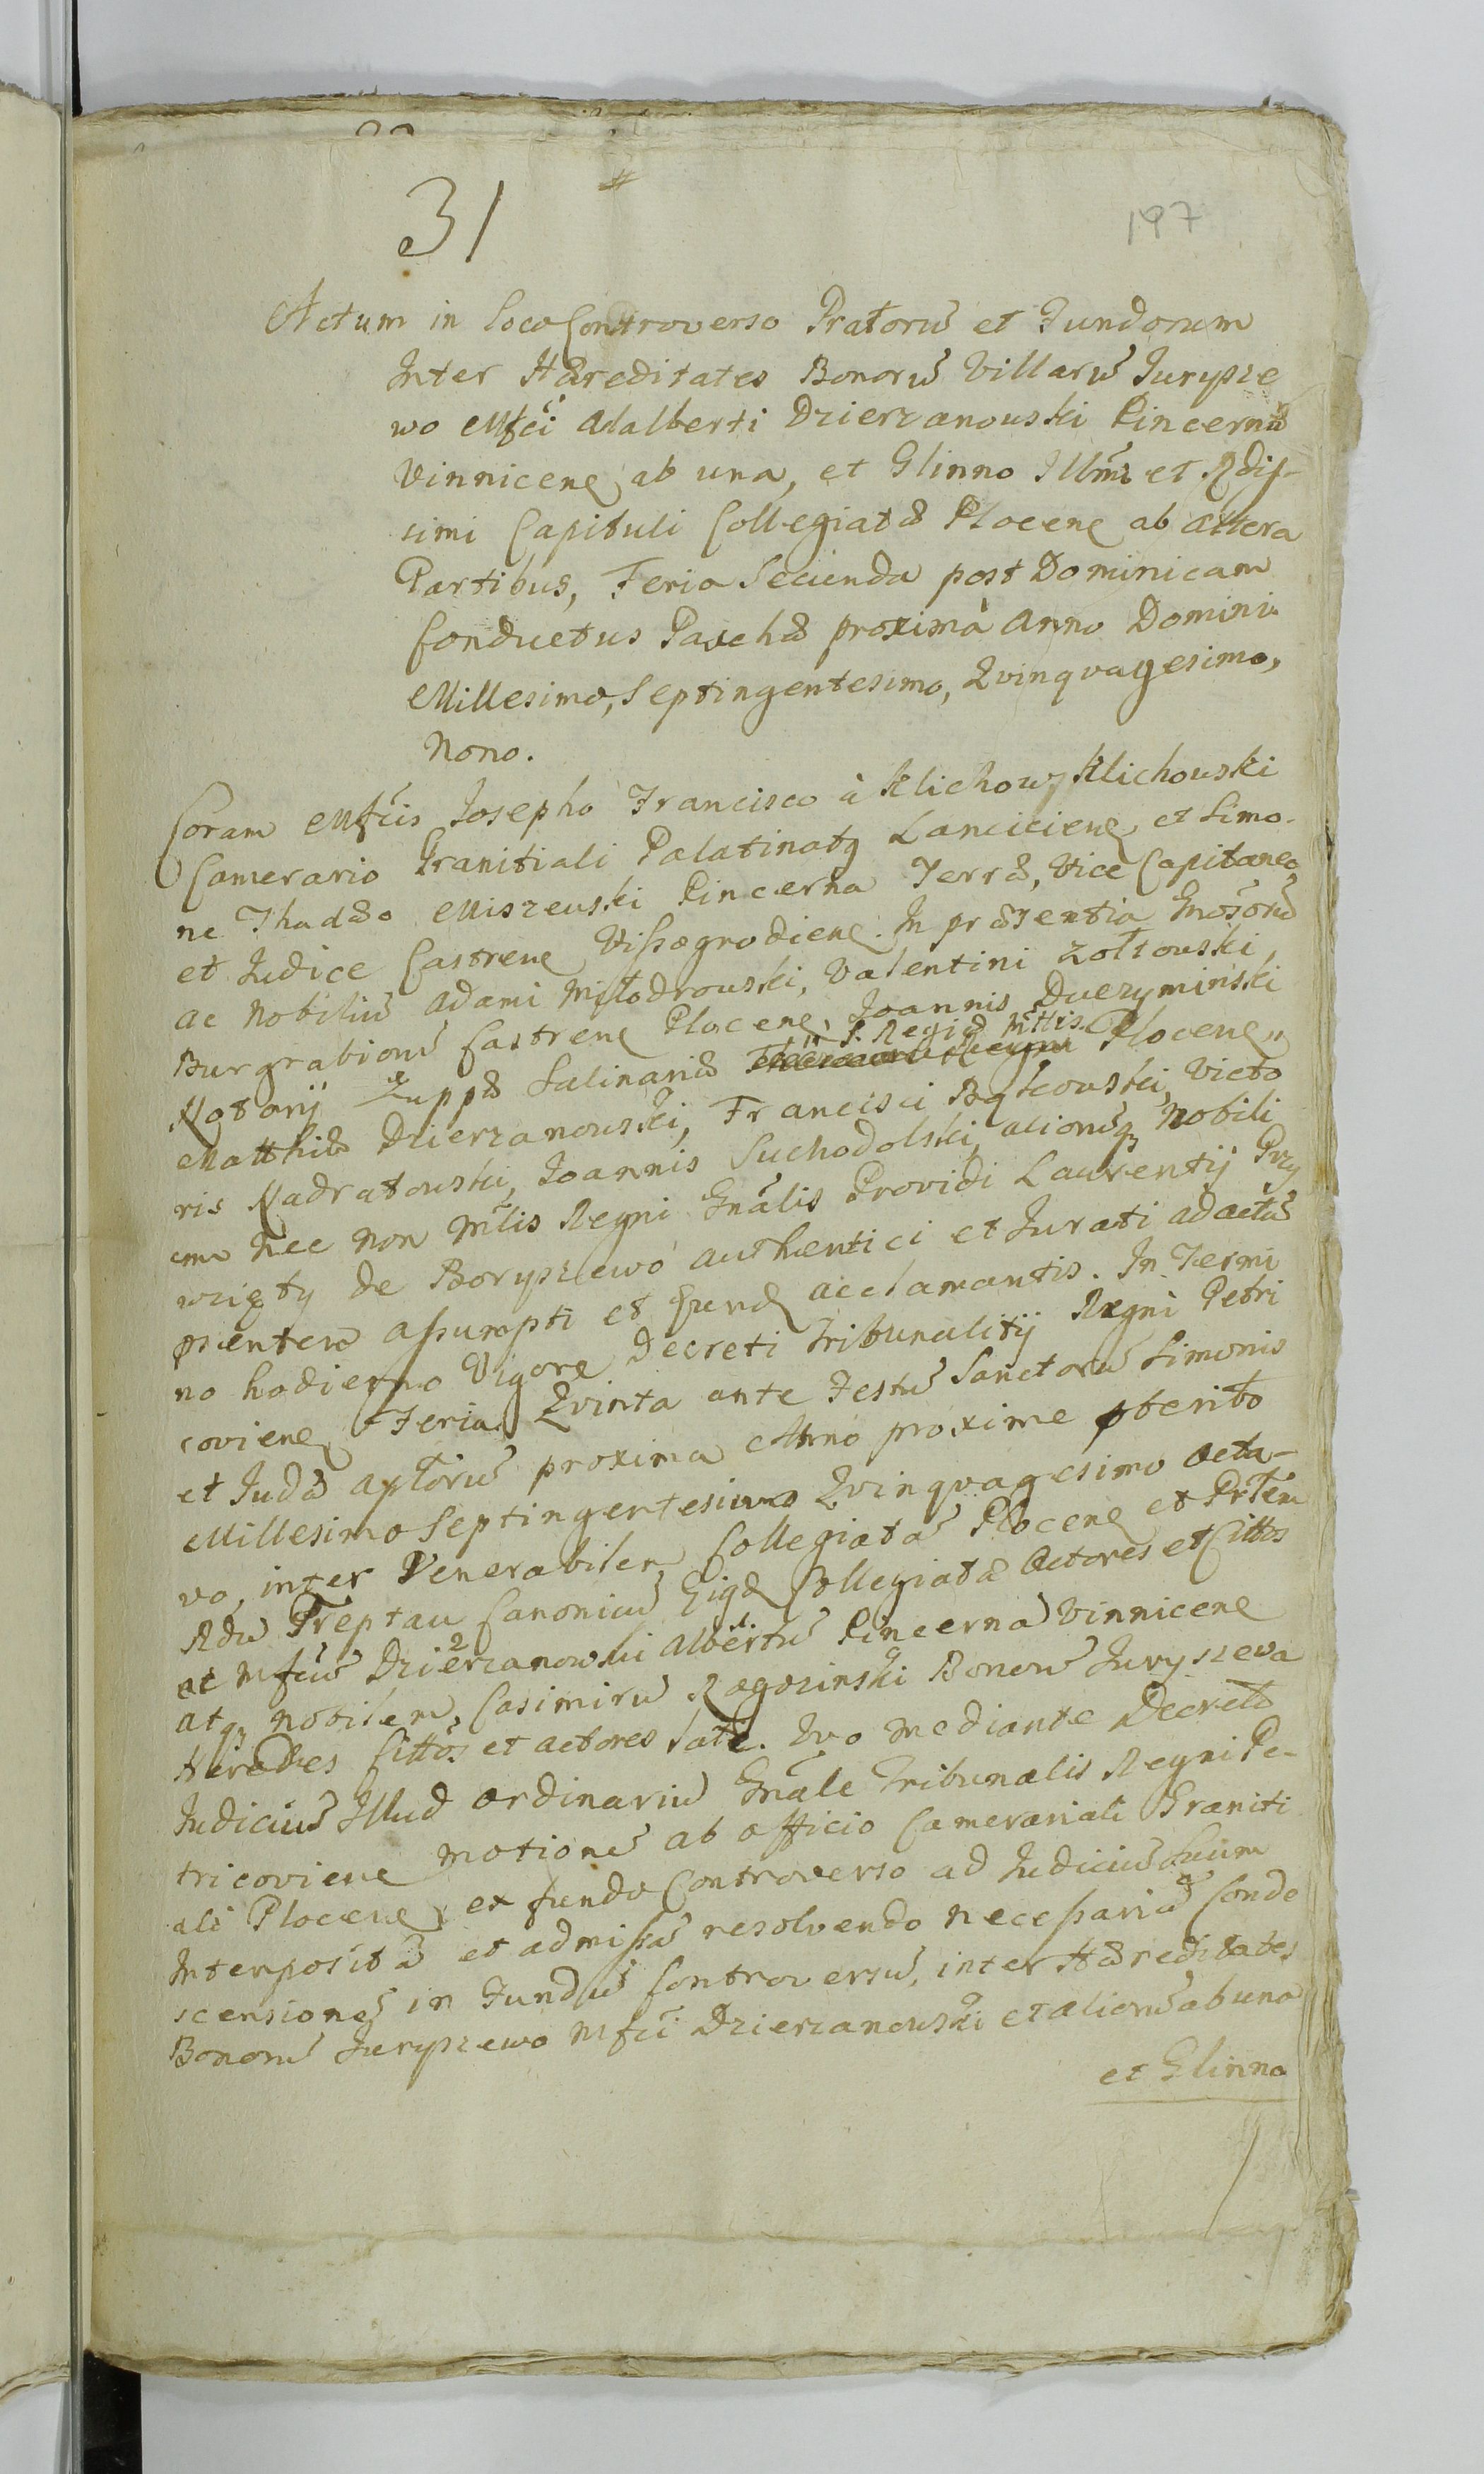 31
197
Actum in Loco Controverso Pratorū et Fundorum
Inter Hæreditates Bonorū Villarū Jurysze
wo Mfci Adalberti Dzierzanouski Pincernæ
Vinnicene ab una, et Glinno Illmi et Rdis-
simi Capituli Collegiatæ Plocene ab altera
Partibus, Feria Secunda post Dominicam
Conductus Paschæ proximà Anno Domini
Millesimo, Septingentesimo, Qvinqvagesimo,
Nono.
Coram Mfcis Josepho Francisco à Klichow Klichouski
Camerario Granitiali Palatinatq Lanciciene, et Simo-
ne Thadæo Miszeuski Pincerna Terræ, Vice Capitaneo
et Judice Castrene Vissogrodiene. In præsentia Gnosorū
ac Nobiliū Adami Miłodrouski, Valentini Zołtouski,
Burgrabiorū Castrene Plocene, Joannis Duczyminski
Notarij Zuppæ Salinariæ S. Regiæ Mttis Plocene,
Matthiæ Dzierzanouski, Francisci Bąkouski, Victo
ris Nadratouski, Joannis Suchodolski, aliorūq Nobili
um Nec non Mlis Regni Gnalis Providi Laurentij Przy
wzięty de Boryszewo authentici et Jurati ad actū
psentem assumpti et acclamantis. In Termi
no hodierno Vigore Decreti Tribunalitij Regni Petri
coviene Feria Qvinta ante Festū Sanctorū Simonis
et Judæ aplorū proxima Anno proxime pterito
Millesimo Septingentesimo Qvinqvagesimo Octa-
vo, inter Venerabilem Collegiatā Plocene et
Rdū Treptau Canonicū Collegiatæ Actores et Cittos
ac Mfcū 2 Dzierzanowski 1 Albertū Pincernā Vinnicene
atq Nobilem, Casimirū Rogozinski Bonorū Juryszewa
Hæredes Cittos et actores lati. Qvo mediante Decreto
Judiciū Illud ordinariū Gnale Tribunalis Regni Pe-
tricoviene Motionē ab officio Camerariali Graniti
ali Plocene ex fundo Controverso ad Judiciū Suum
Interpositā et admissā resolvendo necessariā Conde
scensionē in Fundū Controversū, inter Hæreditates
Bonorū Juryszewo Mfci Dzierzanouski et aliorū ab una
et Glinno